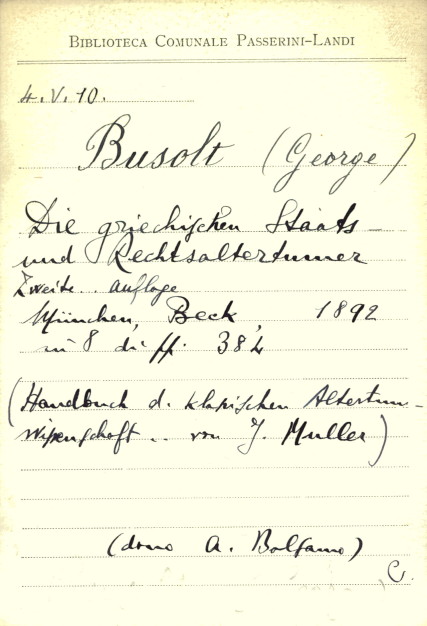 BIBLIOTECA COMUNALE PASSERINI-LANDI
4.V.10.
Busolt (George)
Die griechischen Staats-
und Rechtsaltertumer
Zweite.. auflage
München, Beck, 1892
in 8 di pp. 384
(Handbuch d. klassischen Altertum-
wissenschaft .. von J. Muller)
(dono A.
C.